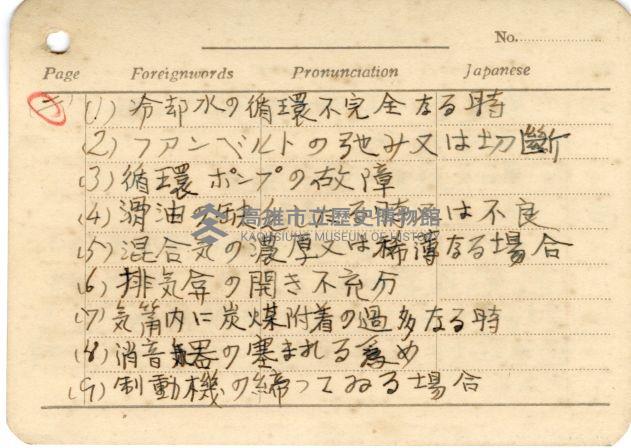 No.
Page Foreignwords Pronunciation Japanese
(1) 冷却水の循環不完全なる時
(2) ファンベルトの弛み又は切斷
(3) 循環ポンプの故障
(4) 滑油 又は不良
高雄市立歷史博物館
KAOHSIUNG MUSEUM OF HISTORY
(5) 混合気の濃厚又は稀薄なる場合
(6) 排気弇の開き不充分
(7) 気筩内に炭煤附着の過多なる時
(8) 消音器の塞まれる爲め
(9) 制動機の締つてゐる場合